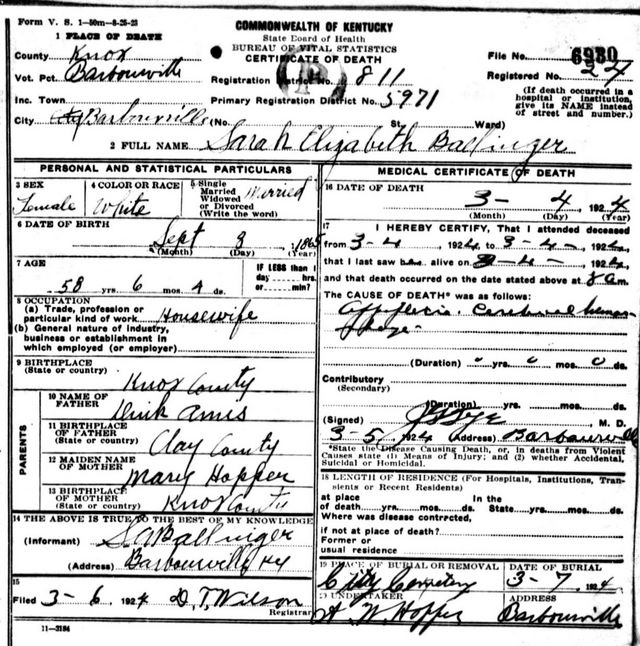 Form V. S. 1-50m-8-26-23
COMMONWEALTH OF KENTUCKY
State Board of Health
BUREAU OF VITAL STATISTICS
CERTIFICATE OF DEATH
1 PLACE OF DEATH
County Knox
Vot. Pct. Barbourville
Inc. Town
City Barbourville (No. St. Ward)
Registration District No. 811
Primary Registration District No. 5971
File No. 6930
Registered No. 27
(If death occurred in a hospital or institution, give its NAME instead of street and number.)
2 FULL NAME Sarah Elizabeth Ballinger
PERSONAL AND STATISTICAL PARTICULARS
3 SEX Female
4 COLOR OR RACE White
5 Single Married Widowed or Divorced (Write the word) Married
6 DATE OF BIRTH Sept 8, 1865
(Month) (Day) (Year)
7 AGE 58 yrs. 6 mos. 4 ds.
IF LESS than 1 day hrs. or min?
8 OCCUPATION
(a) Trade, profession or particular kind of work Housewife
(b) General nature of industry, business or establishment in which employed (or employer)
9 BIRTHPLACE (State or country) Knox County
PARENTS
10 NAME OF FATHER Dink Amis
11 BIRTHPLACE OF FATHER (State or country) Clay County
12 MAIDEN NAME OF MOTHER Mary Hopper
13 BIRTHPLACE OF MOTHER (State or country) Knox County
14 THE ABOVE IS TRUE TO THE BEST OF MY KNOWLEDGE
(Informant) S. A. Ballinger
(Address) Barbourville Ky
15
Filed 3-6, 1924 D. T. Wilson
Registrar
11-3184
MEDICAL CERTIFICATE OF DEATH
16 DATE OF DEATH 3- 4, 1924
(Month) (Day) (Year)
17 I HEREBY CERTIFY, That I attended deceased
from 3-4, 1924, to 3-4-, 1924,
that I last saw alive on 3-4-, 1924,
and that death occurred on the date stated above at 8 am.
The CAUSE OF DEATH* was as follows:
Cerebral hemorrhage-
(Duration) 0 yrs. 0 mos. 0 ds.
Contributory
(Secondary)
(Duration) yrs. mos. ds.
(Signed) M. D.
3 5, 1924 (Address) Barbourville
*State the Disease Causing Death, or, in deaths from Violent Causes state (1) Means of Injury; and (2) whether Accidental, Suicidal or Homicidal.
18 LENGTH OF RESIDENCE (For Hospitals, Institutions, Transients or Recent Residents)
at place of death yrs. mos. ds. In the State yrs. mos. ds.
Where was disease contrected,
if not at place of death?
Former or usual residence
19 PLACE OF BURIAL OR REMOVAL City Cemetery
DATE OF BURIAL 3-7, 1924
20 UNDERTAKER A. W. Hopper
ADDRESS Barbourville